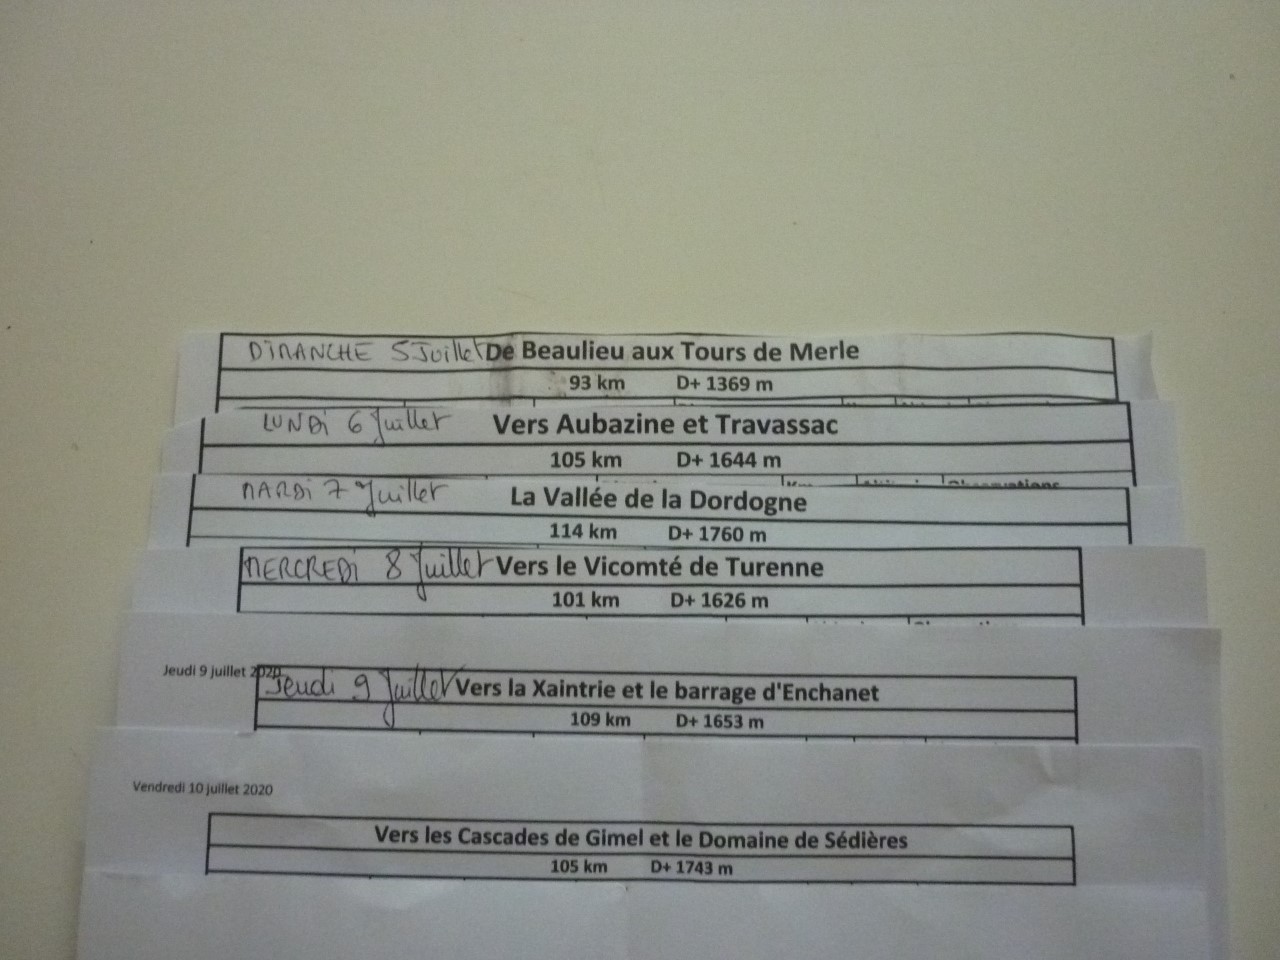 DIMANCHE 5 Juillet De Beaulieu aux Tours de Merle
93 km D+ 1369 m
LUNDI 6 Juillet Vers Aubazine et Travassac
105 km D+ 1644 m
MARDI 7 Juillet La Vallée de la Dordogne
114 km D+ 1760 m
MERCREDI 8 Juillet Vers le Vicomté de Turenne
101 km D+ 1626 m
Jeudi 9 juillet 2020
Jeudi 9 Juillet Vers la Xaintrie et le barrage d'Enchanet
109 km D+ 1653 m
Vendredi 10 juillet 2020
Vers les Cascades de Gimel et le Domaine de Sédières
105 km D+ 1743 m